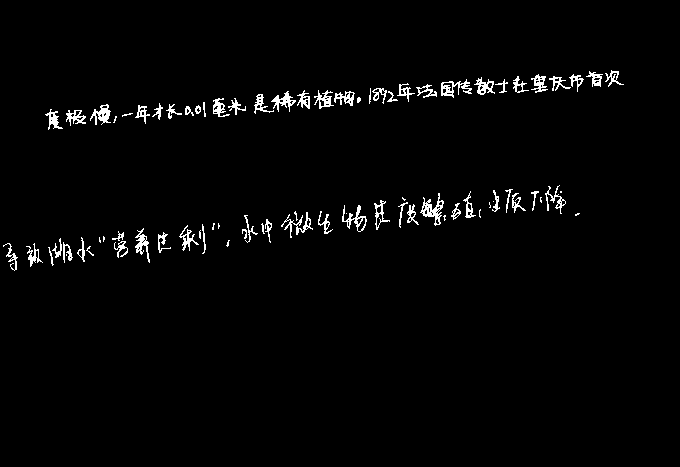 度极慢,一年才长0.01毫米是稀有植物。1892年法国传教士在重庆市首次
导致湖水"营养过剩",水中微生物过度繁殖,水质下降.